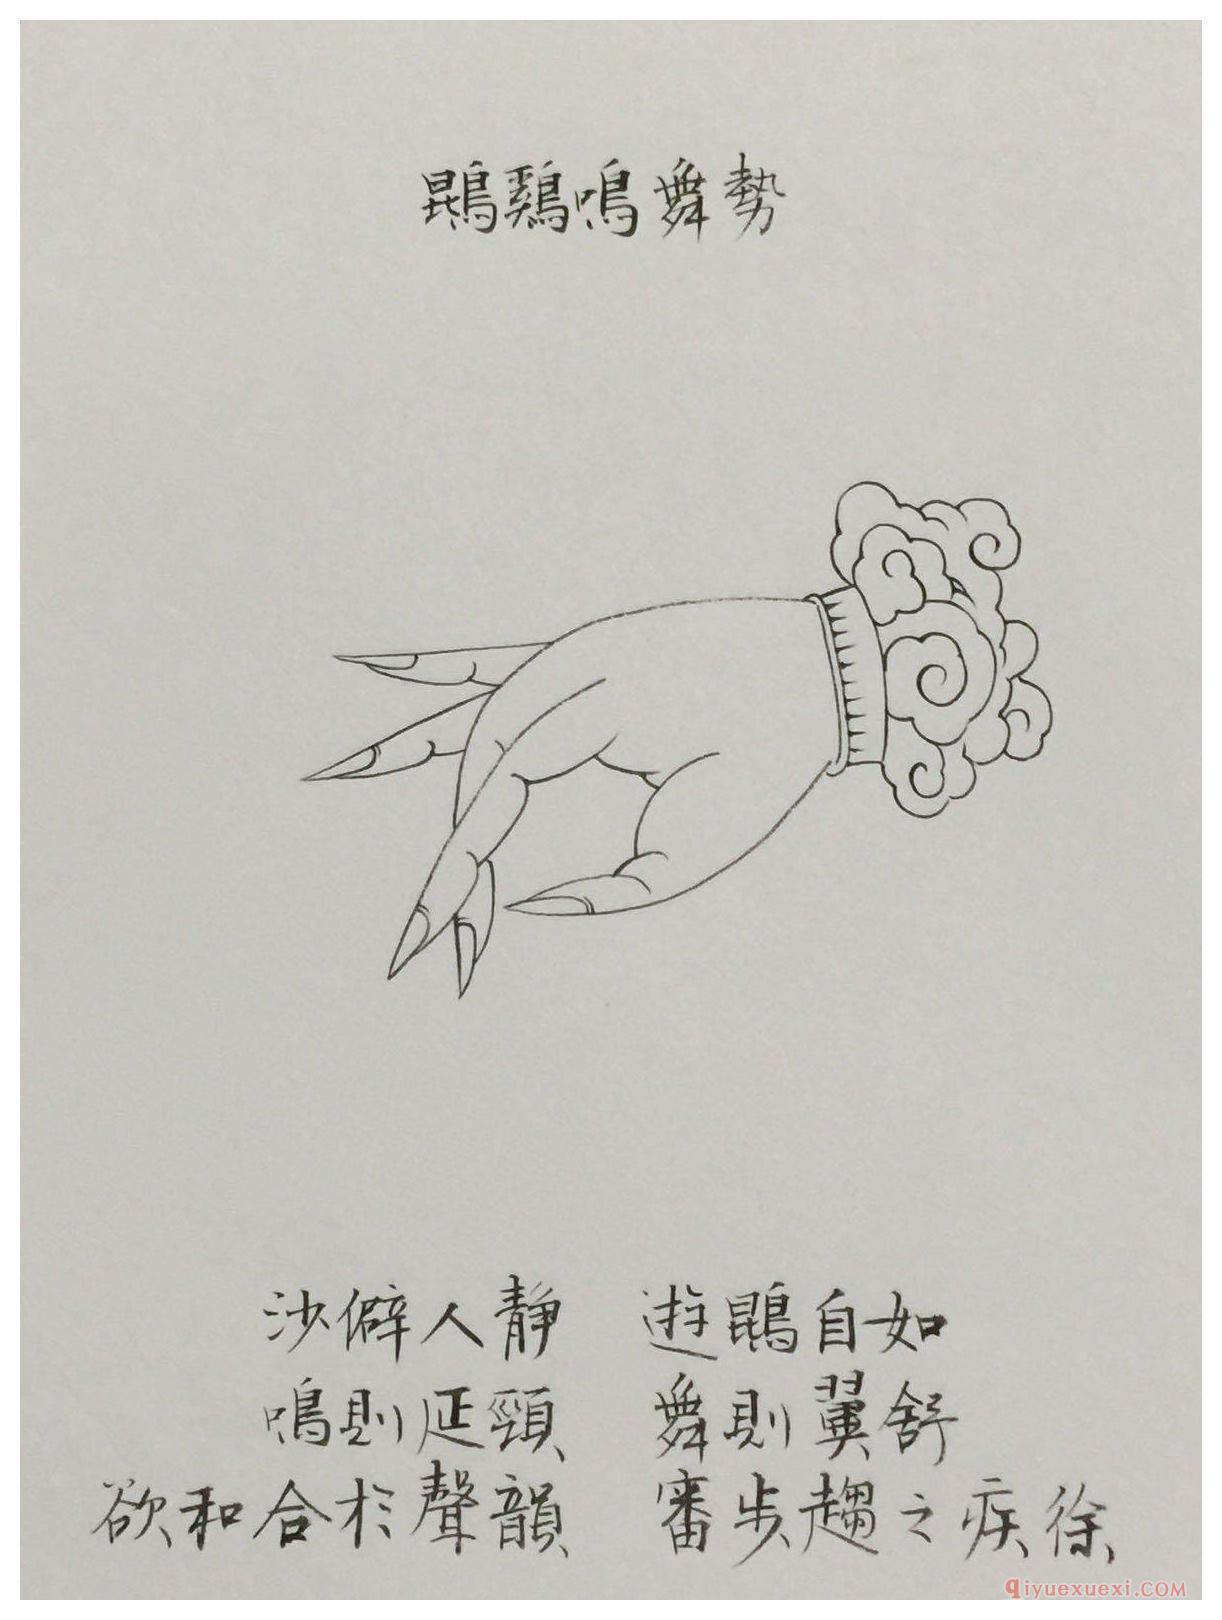 鵾鷄鳴舞勢
沙僻人靜　遊鵾自如
鳴則延頸　舞則翼舒
欲和合於聲韻　審步趨之疾徐
qiyuexuexi.COM